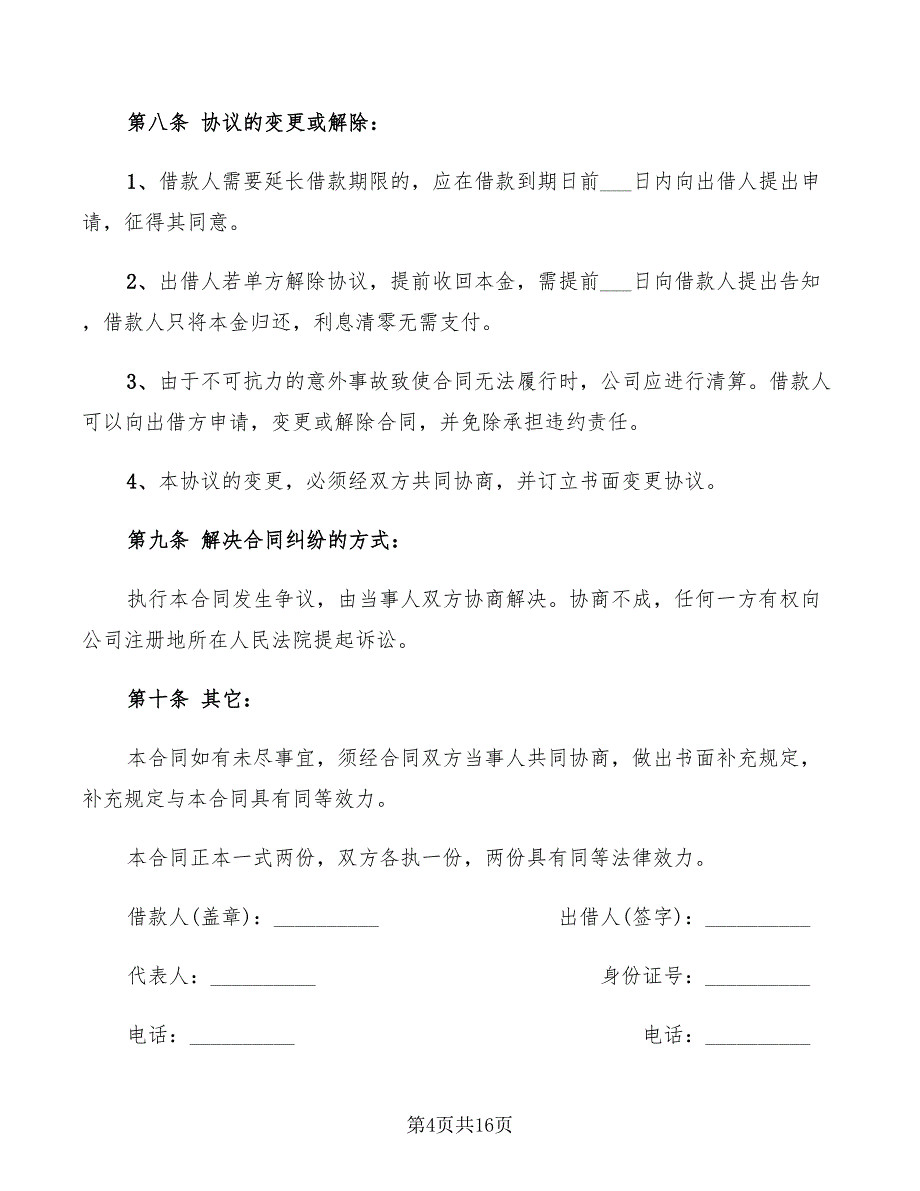 第八条 协议的变更或解除：
1、借款人需要延长借款期限的，应在借款到期日前___日内向出借人提出申
请，征得其同意。
2、出借人若单方解除协议，提前收回本金，需提前___日向借款人提出告知
，借款人只将本金归还，利息清零无需支付。
3、由于不可抗力的意外事故致使合同无法履行时，公司应进行清算。借款人
可以向出借方申请，变更或解除合同，并免除承担违约责任。
4、本协议的变更，必须经双方共同协商，并订立书面变更协议。
第九条 解决合同纠纷的方式：
执行本合同发生争议，由当事人双方协商解决。协商不成，任何一方有权向
公司注册地所在人民法院提起诉讼。
第十条 其它：
本合同如有未尽事宜，须经合同双方当事人共同协商，做出书面补充规定，
补充规定与本合同具有同等效力。
本合同正本一式两份，双方各执一份，两份具有同等法律效力。
借款人(盖章)：__________ 出借人(签字)：__________
代表人：__________ 身份证号：__________
电话：__________ 电话：__________
第4页共16页